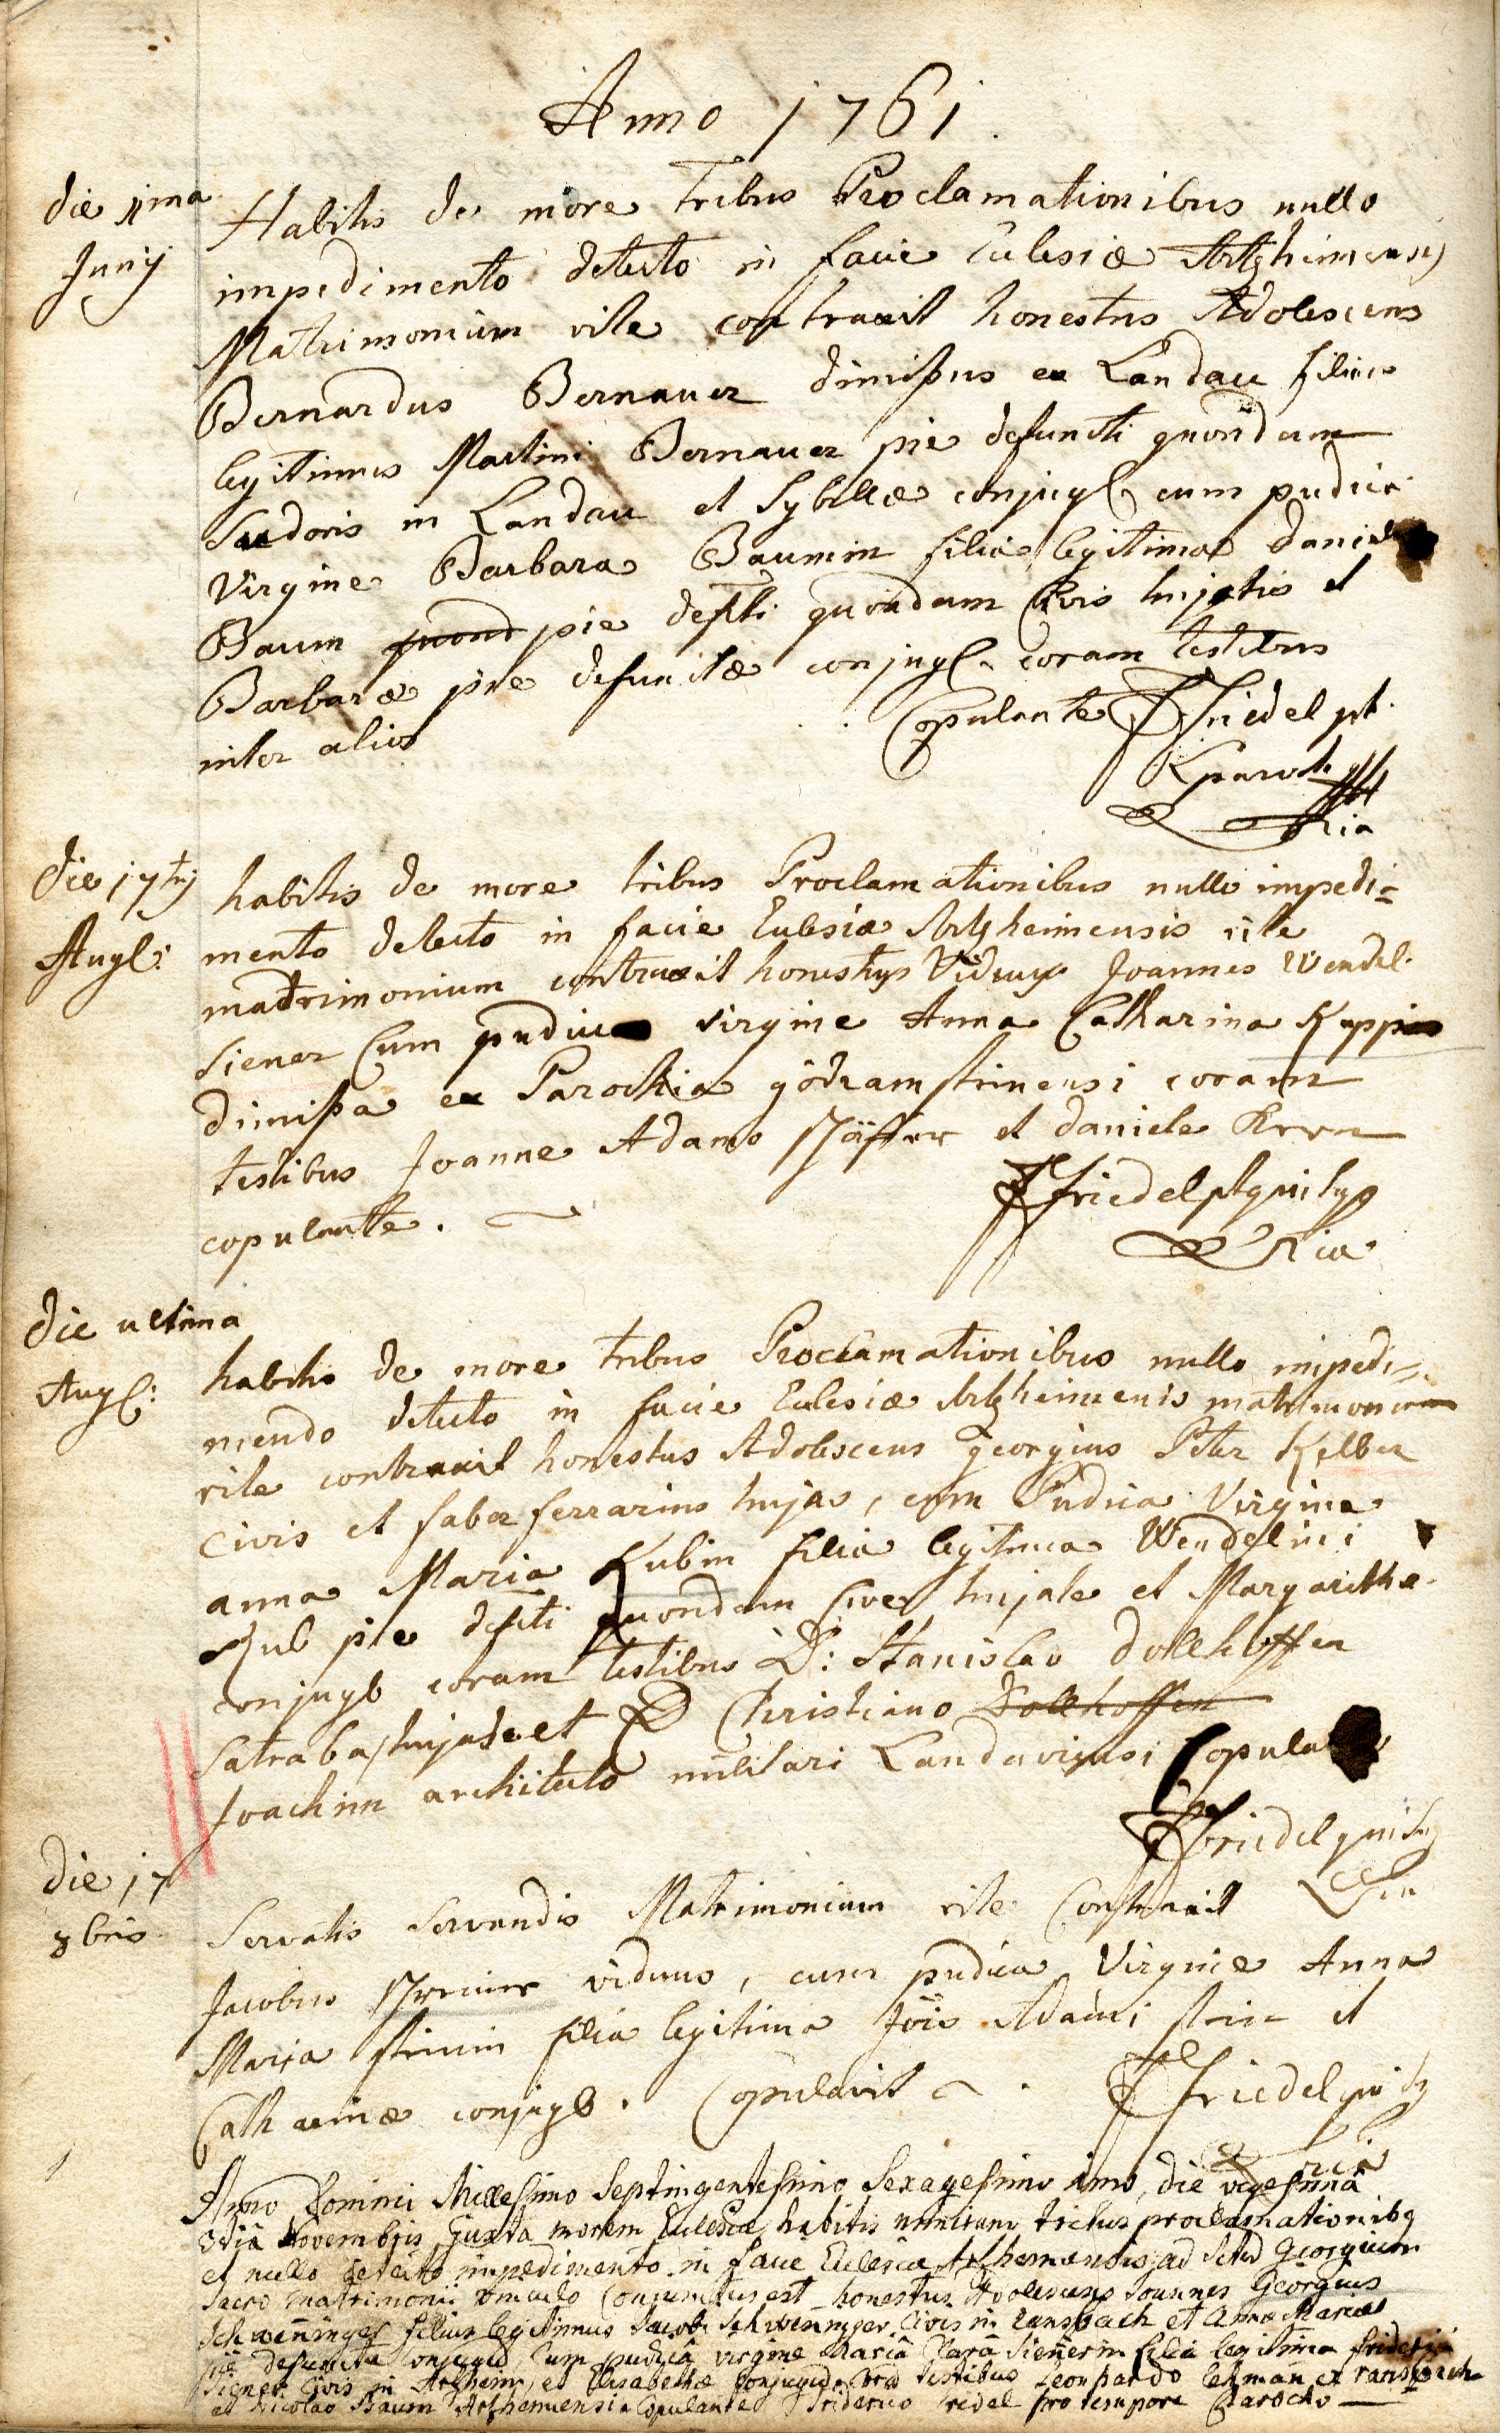 Anno 1761.
die 11ma
Junij
Habitis de more tribus Proclamationibus nullo
impedimento detecto in facie Eclesiæ Artzheimensis
Matrimonium rite contraxit honestus Adolescens
Bernardus Bernauer dimißus ex Landau filius
legitimus Martini Bernauer pie defuncti quondam
in Landau et Sybillæ conjugl. cum pudica
Virgine Barbara Baumin filia legitima Daniel
Baum quond pie defti quondam Civis hujatis et
Barbaræ pie defunctæ conjugl. coram testibus
inter alios Copulante Friedel pt.
parocho
die 17tij
Augl:
habitis de more tribus Proclamationibus nullo impedi=
mento detecto in facie Eclesiæ Artzheimensis rite
matrimonium contraxit honestus Viduus Joannes Wendel
Siener Cum pudica virgine Anna Catharina
dimißa ex Parochia gödramsteinensi coram
testibus Joanne Adamo et Daniele Kern
copulante. Friedel
die ultima
Augl:
habitis de more tribus Proclamationibus nullo impedi=
mendo detecto in facie Eclesiæ Artzheimensis matrimonium
rite contraxit honestus Adolescens Georgius Peter Kelber
civis et faber ferrarius hujas, cum Pudica Virgine
anna Maria Kubin filia legitima Wendelini
Kub pie defti quondam Cives hujate et Margarithæ
conjugl coram testibus D: Stanislao Dollhoffen
Satraba hujate et D Christiano Dollhoffen
Joachim architecto militari Landaviensi Copulante
Friedel
die 17
8bris
Servatis Servandis Matrimonium rite Contraxit
Jacobus viduus, cum pudica Virgine Anna
Maria Steinin filia legitima Jois Adami Stein et
Catharinæ conjugl. Copulavit Friedel
Anno Domini Millesimo Septingentesimo Sexagesimo imo, die vigesima
3tia Novembris, Juxta morem Eclesiæ, habitis nimirum tribus proclamationibq
et nullo detecto impedimento in facie Eclesiæ Arzhemensis ad Sctum Georgium
Sacro matrimonii vinculo Conjunctus est honestus Adolescens Joannes Georgius
Schweninger filius legitimus Jacobi Schweninger Civis in Ransbach et Annæ Mariæ
piè defunctæ conjugum, Cum pudica virgine Maria Clara Sienerin filia legitima friderici
Siener Civis in Arzheim, et Elisabethæ Conjugum, Coram testibus Leonhardo Lehman ex Ransbach
et Nicolao Baum Arzhemensi Copulante Friderico Fridel pro tempore Parocho